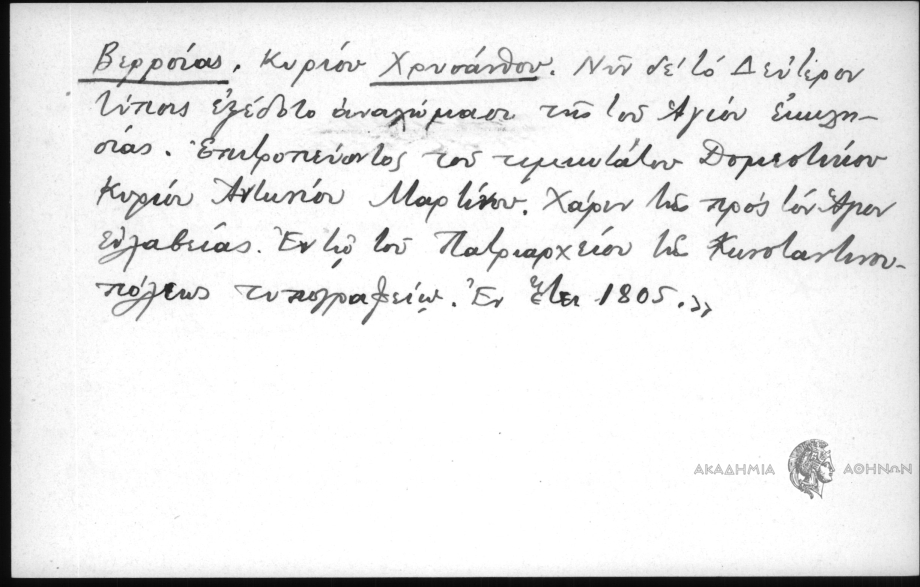 Βερροίας, Κυρίου Χρυσάνθου. Νῦν δέ τό Δεύτερον
τύποις ἐξεδόθη ἀναλώμασι τῆς τοῦ Ἁγίου Ἐκκλη-
σίας. Ἐπιτροπεύοντος τοῦ τιμιωτάτου Δομεστίκου
Κυρίου Ἀντωνίου Μαρτίνου. Χάριν τῆς πρός τόν Ἅγιον
εὐλαβείας. Ἐν τῷ τοῦ Πατριαρχείου τῆς Κωνσταντινου-
πόλεως τυπογραφείῳ. Ἐν ἔτει 1805.»
ΑΚΑΔΗΜΙΑ ΑΘΗΝΩΝ